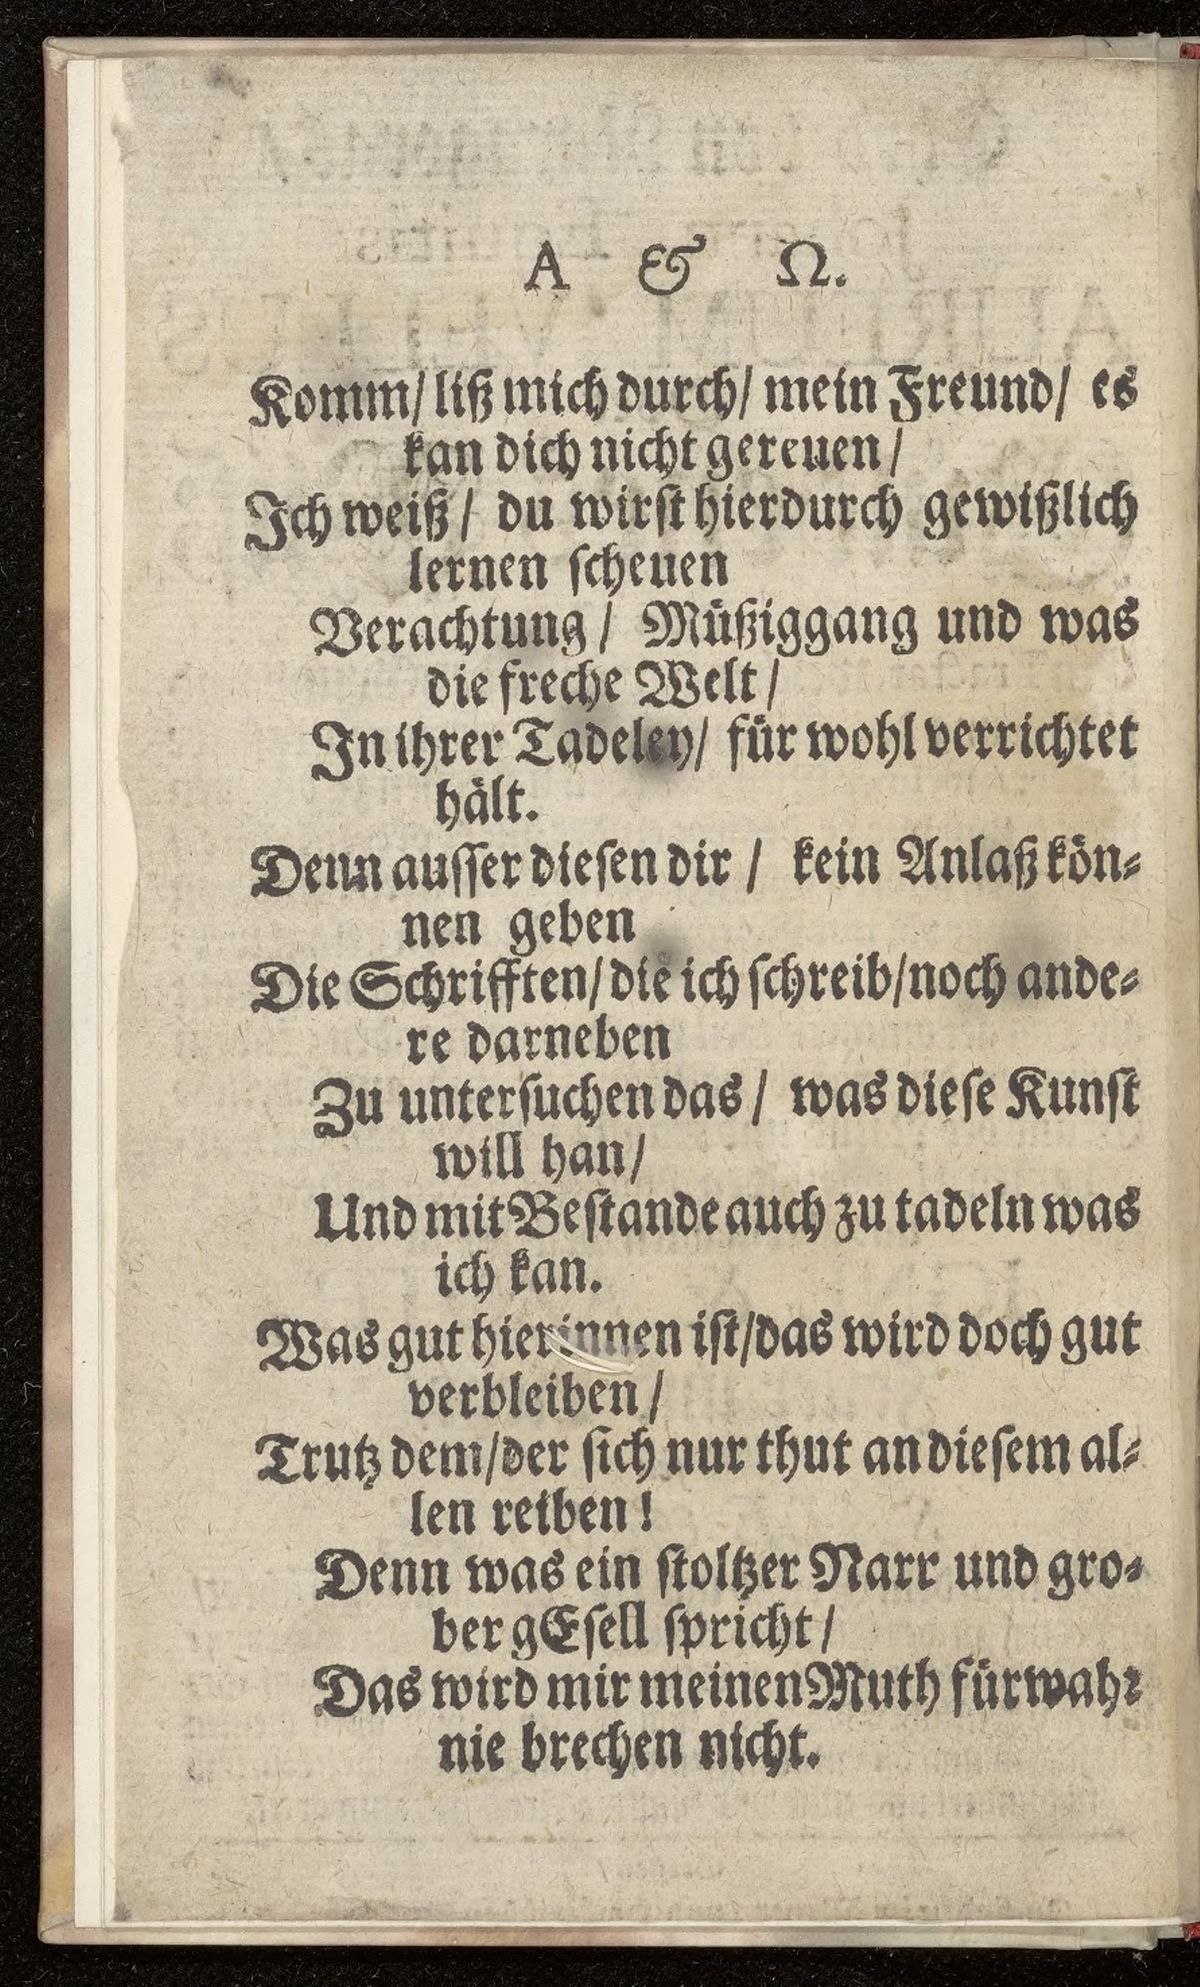 A & Ω.
Komm/ liß mich durch/ mein Freund/ es
kan dich nicht gereuen/
Ich weiß/ du wirst hierdurch gewißlich
lernen scheuen
Verachtung/ Müßiggang und was
die freche Welt/
In ihrer Tadeley/ für wohl verrichtet
hält.
Denn ausser diesen dir/ kein Anlaß kön-
nen geben
Die Schrifften/ die ich schreib/ noch ande-
re darneben
Zu untersuchen das/ was diese Kunst
will han/
Und mit Bestande auch zu tadeln was
ich kan.
Was gut hierinnen ist/ das wird doch gut
verbleiben/
Trutz dem/ der sich nur thut an diesem al-
len reiben!
Denn was ein stoltzer Narr und gro-
ber gEsell spricht/
Das wird mir meinen Muth fürwahr
nie brechen nicht.